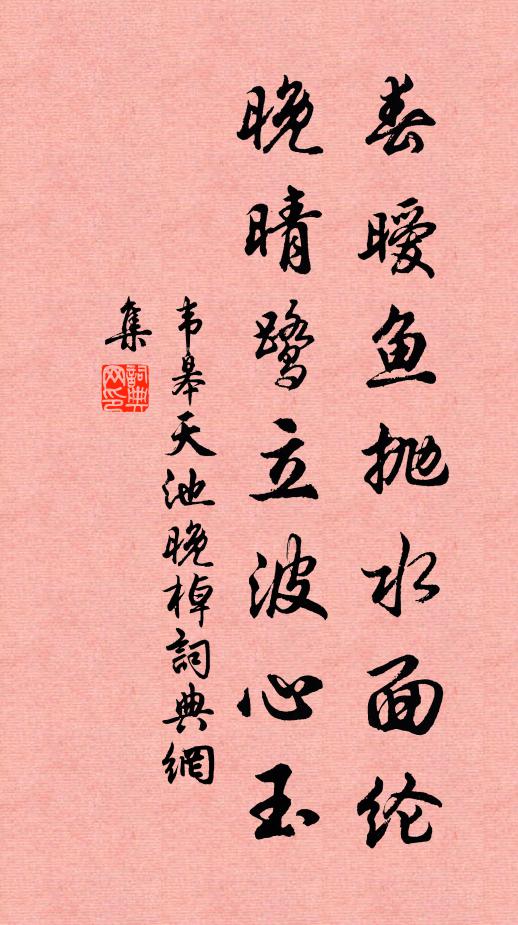 春暖鱼抛水面纶
晚晴鹭立波心玉
韦皋天池晚棹詞典網
集
詞典網印